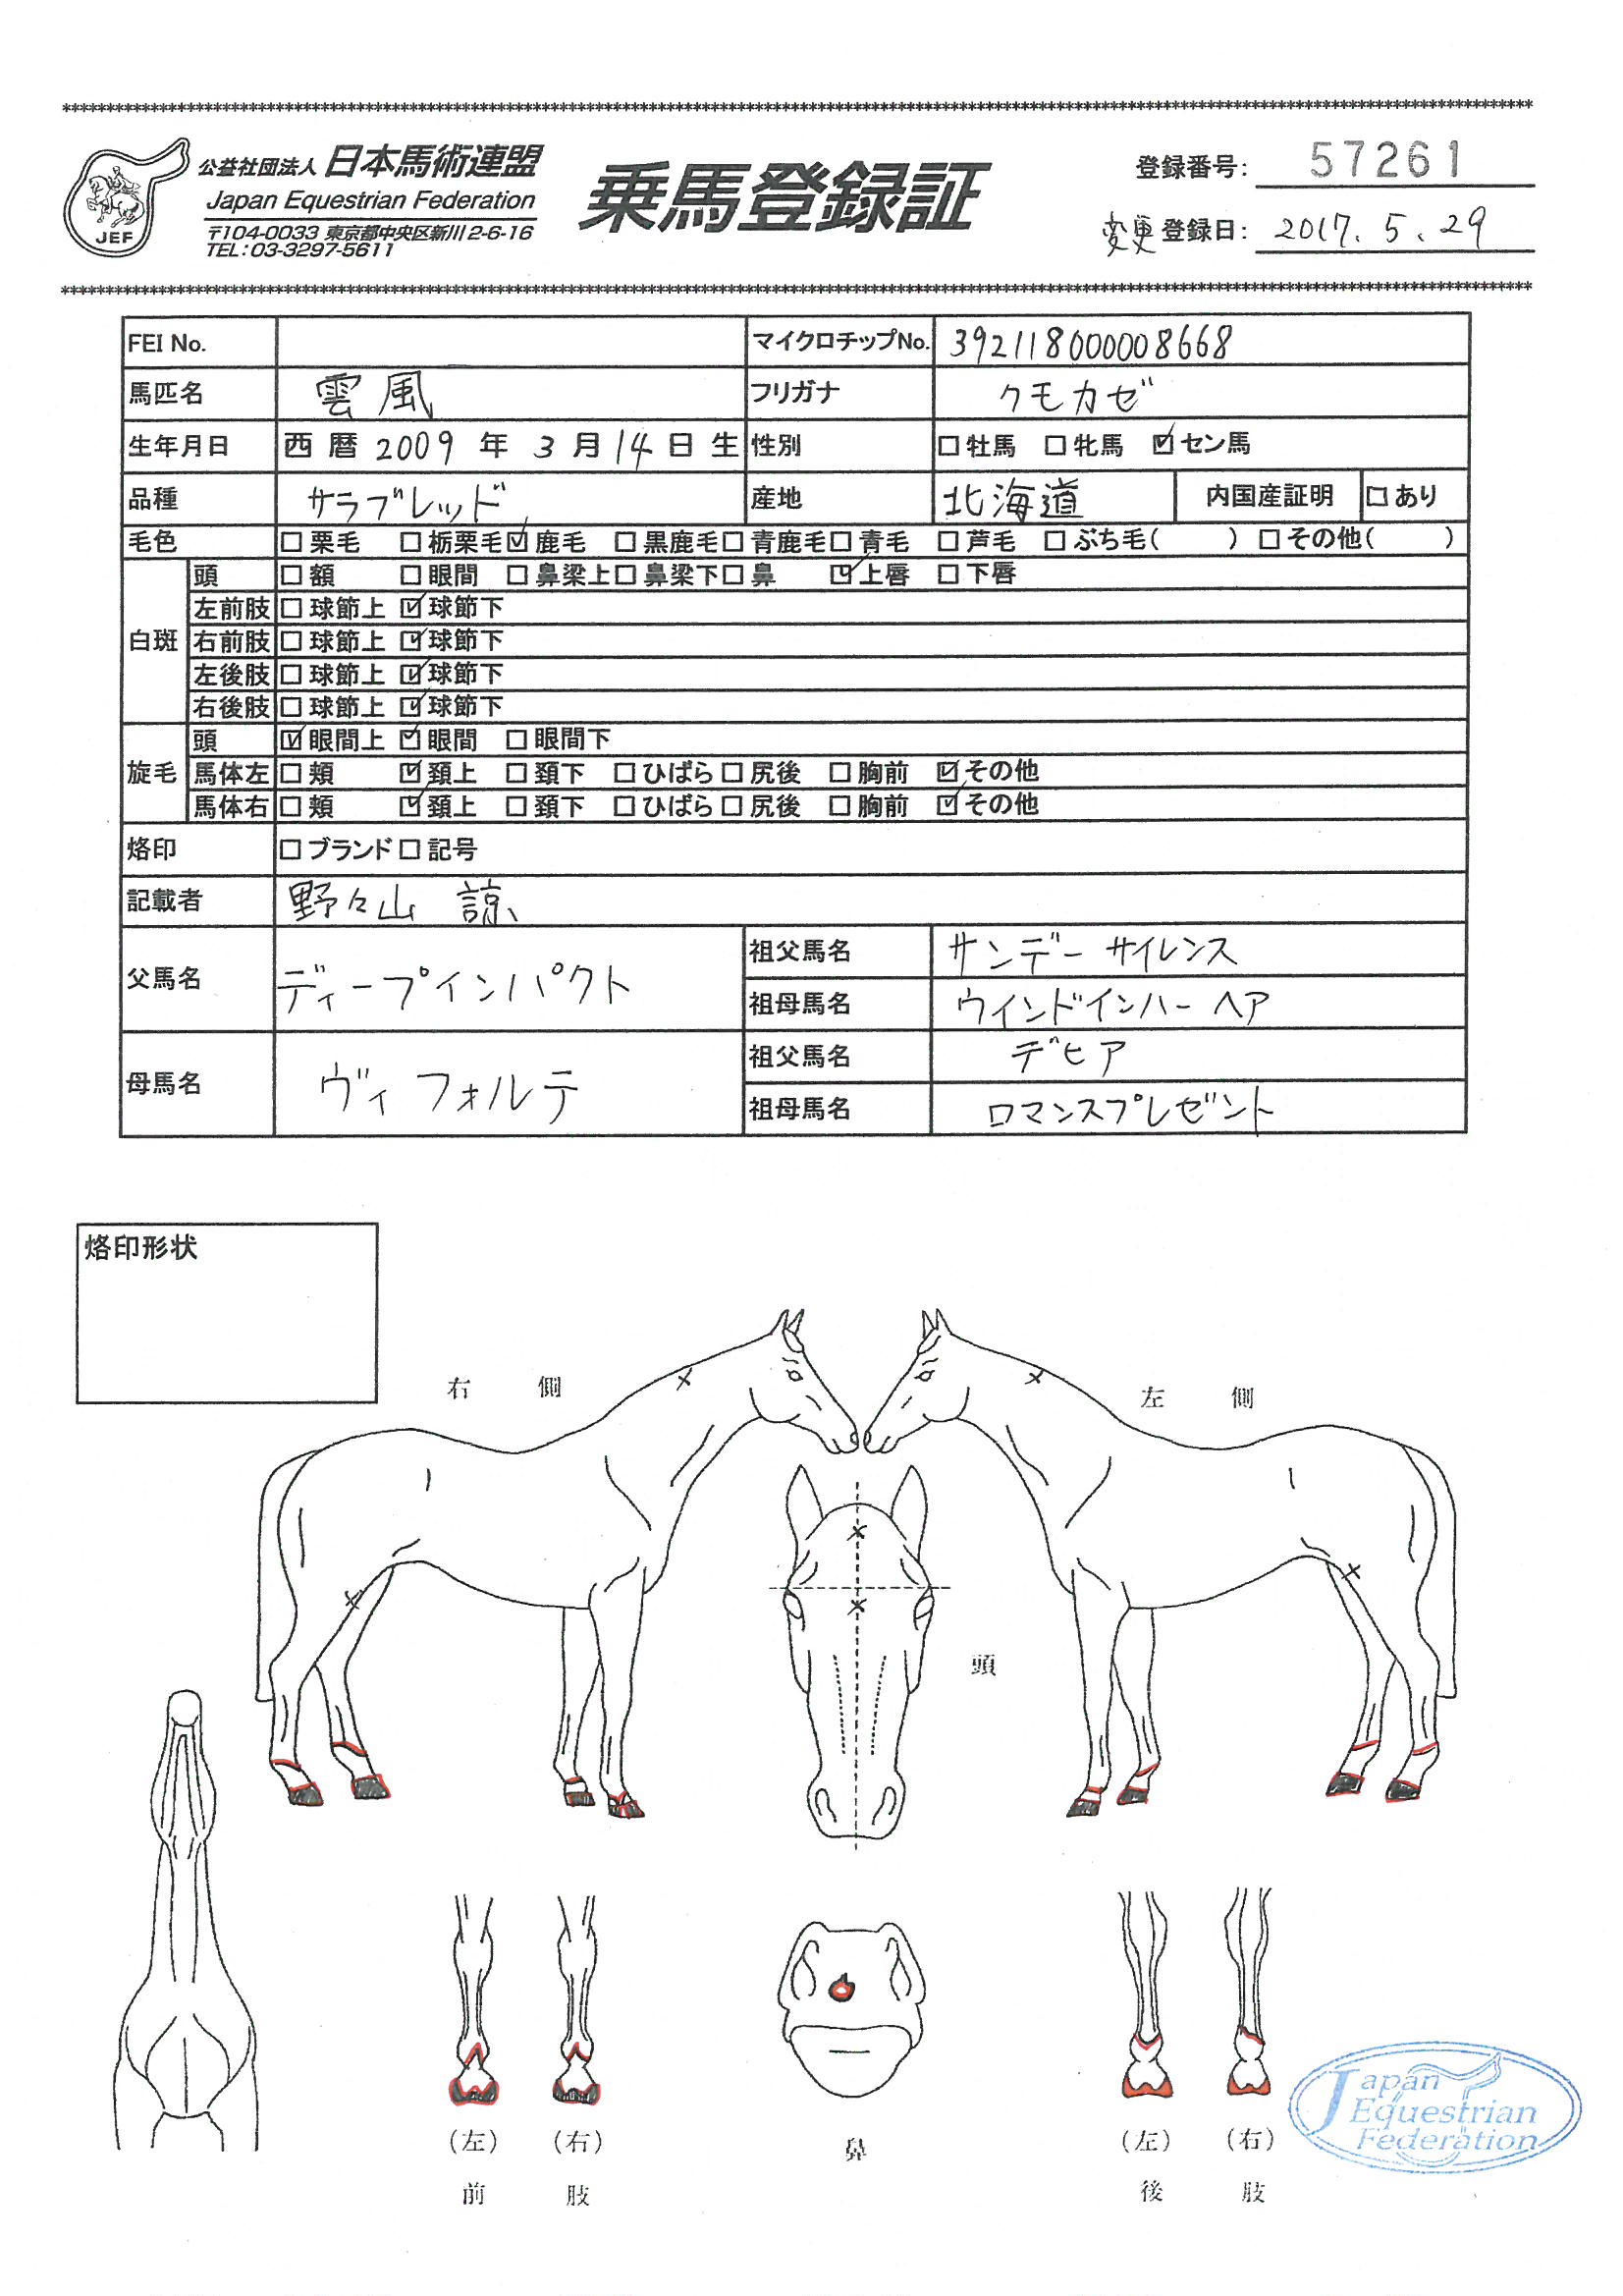 ********************************************************************************
公益社団法人 日本馬術連盟
Japan Equestrian Federation
〒104-0033 東京都中央区新川2-6-16
TEL:03-3297-5611
JEF
乗馬登録証
登録番号: 57261
変更 登録日: 2017. 5. 29
********************************************************************************
FEI No. マイクロチップNo. 392118000008668
馬匹名 雲風 フリガナ クモカゼ
生年月日 西暦 2009 年 3 月 14 日 生 性別 □牡馬 □牝馬 ☑セン馬
品種 サラブレッド 産地 北海道 内国産証明 □あり
毛色 □栗毛 □栃栗毛 ☑鹿毛 □黒鹿毛 □青鹿毛 □青毛 □芦毛 □ぶち毛( ) □その他( )
白斑 頭 □額 □眼間 □鼻梁上 □鼻梁下 □鼻 ☑上唇 □下唇
左前肢 □球節上 ☑球節下
右前肢 □球節上 ☑球節下
左後肢 □球節上 ☑球節下
右後肢 □球節上 ☑球節下
旋毛 頭 ☑眼間上 ☑眼間 □眼間下
馬体左 □頬 ☑頚上 □頚下 □ひばら □尻後 □胸前 ☑その他
馬体右 □頬 ☑頚上 □頚下 □ひばら □尻後 □胸前 ☑その他
烙印 □ブランド □記号
記載者 野々山 諒
父馬名 ディープインパクト 祖父馬名 サンデーサイレンス
祖母馬名 ウインドインハーヘア
母馬名 ヴィフォルテ 祖父馬名 デヒア
祖母馬名 ロマンスプレゼント
烙印形状
右 側
左 側
頭
(左) (右)
前 肢
鼻
(左) (右)
後 肢
Japan
Equestrian
Federation